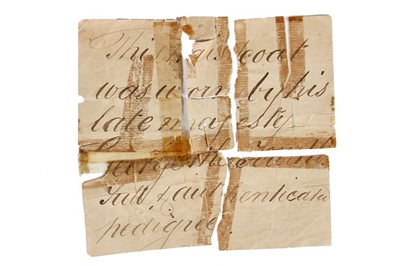 This coat
was worn by his
late majesty
George the Fourth
Full & authenticated
pedigree